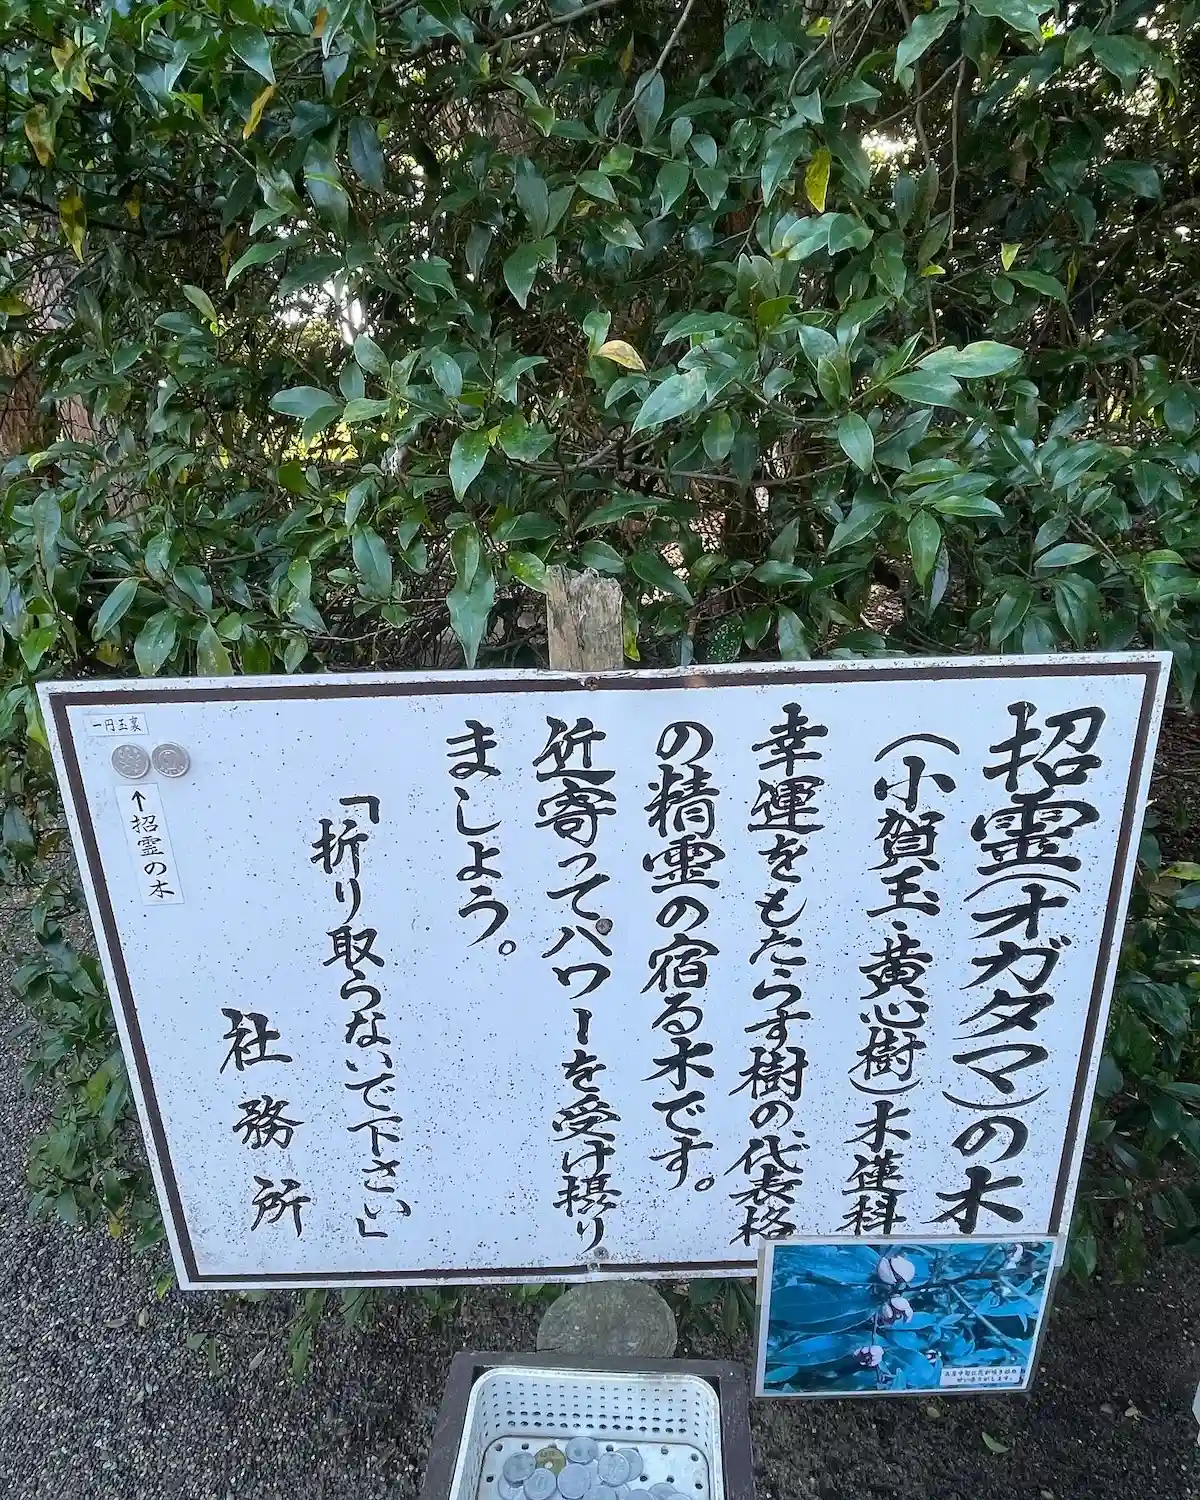 招霊(オガタマ)の木
(小賀玉・黄心樹)木蓮科
幸運をもたらす樹の代表格
の精霊の宿る木です。
近寄ってパワーを受け摂り
ましょう。
「折り取らないで下さい」
社務所
一円玉裏
↑招霊の木